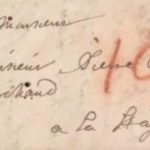 Monsieur
sieur Pierre
chand
a La Hay